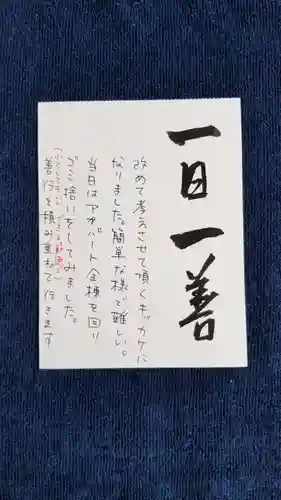 一日一善
改めて考えさせて頂くキッカケに
なりました。簡単な様で難しい。
当日はアパート全棟を回り
ゴミ拾いをしてみました。
善行を積み重ねて行きます